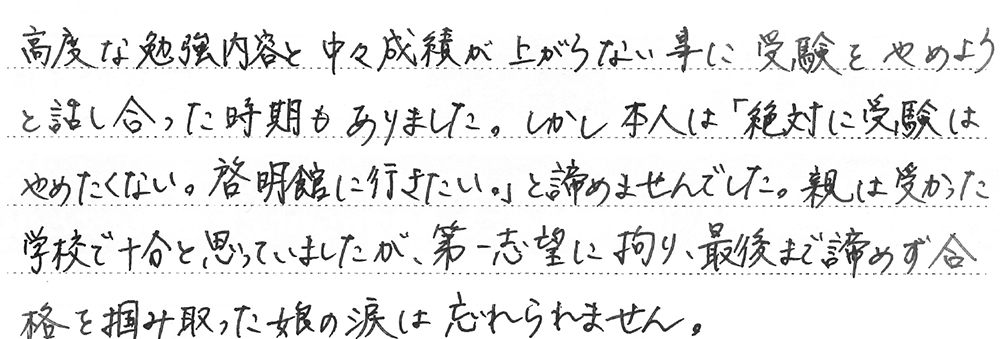 高度な勉強内容と中々成績が上がらない事に受験をやめよう
と話し合った時期もありました。しかし本人は「絶対に受験は
やめたくない。啓明館に行きたい。」と諦めませんでした。親は受かった
学校で十分と思っていましたが、第一志望に拘り、最後まで諦めず合
格を掴み取った娘の涙は忘れられません。